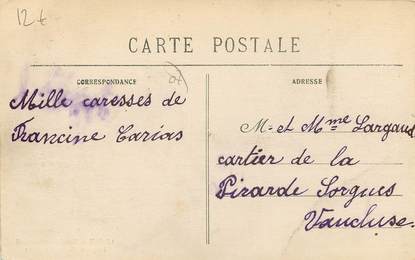 12 t
CARTE POSTALE
CORRESPONDANCE
ADRESSE
Mille caresses de
Francine Carias
M. et Mme Largaud
cartier de la
Pirarde Sorgues
Vaucluse.